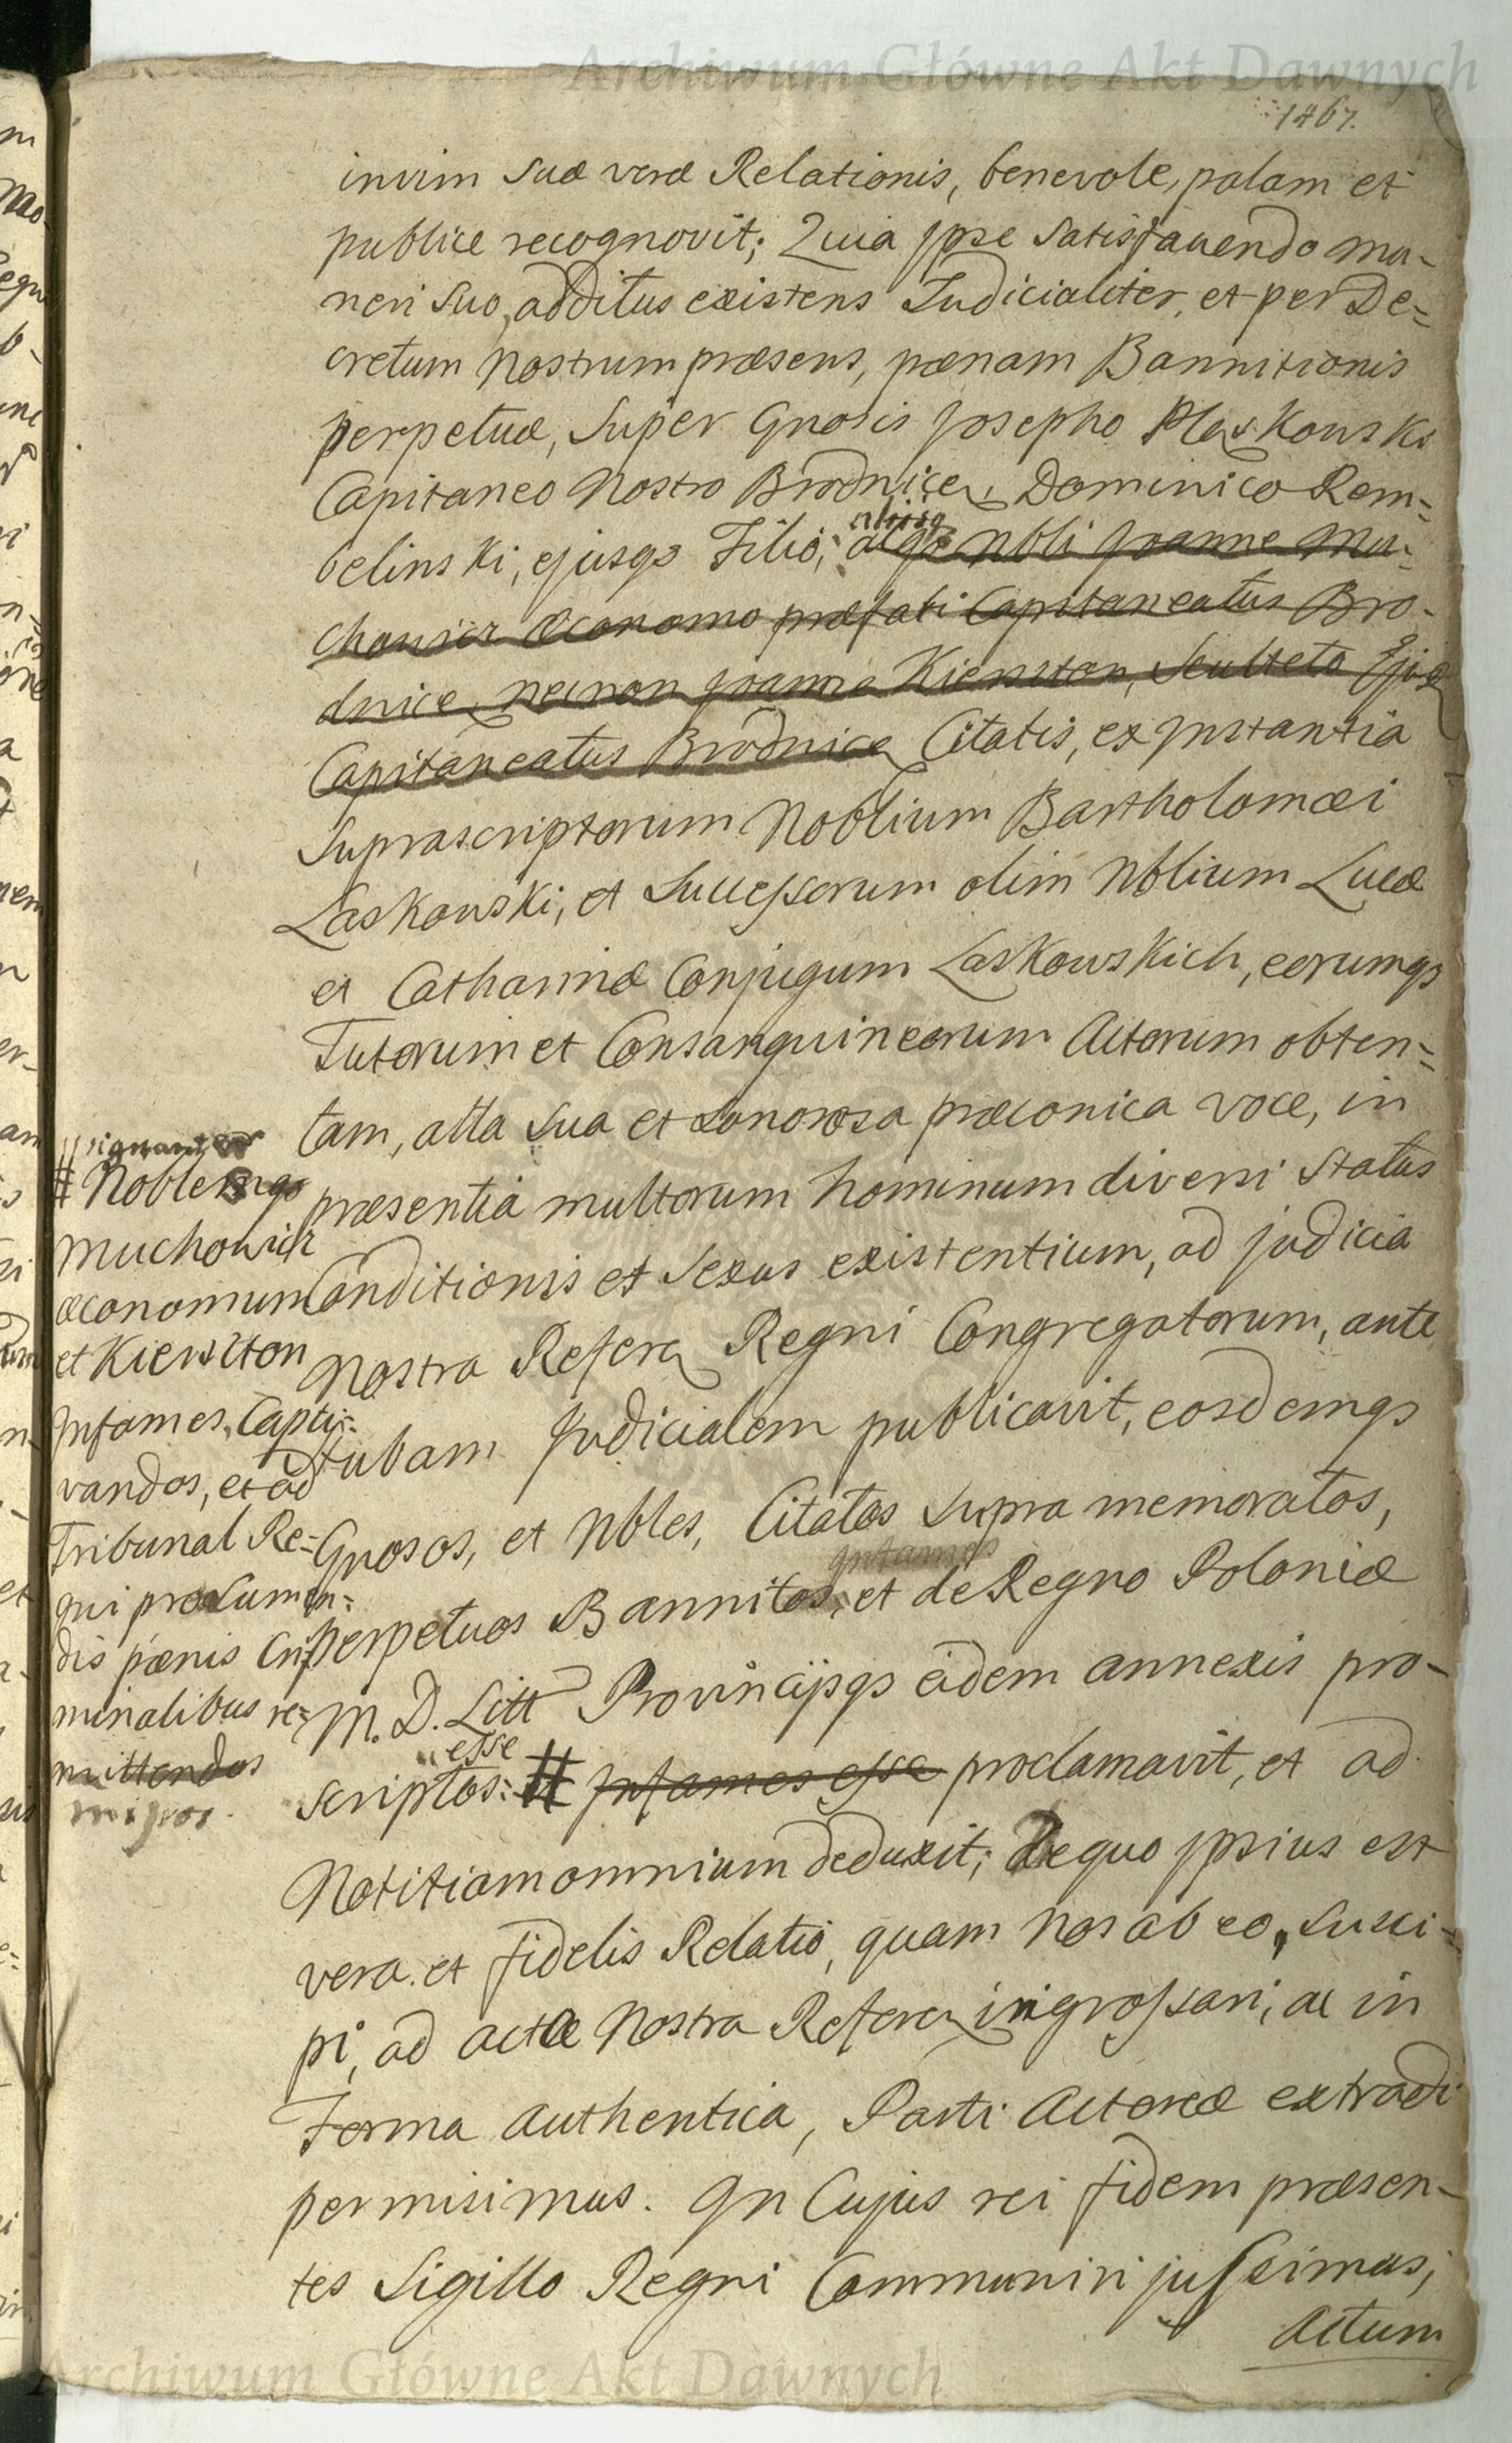 Archiwum Główne Akt Dawnych
1467.
invim suæ veræ Relationis, benevole, palam et
publice recognovit; Quia Jpse satisfaciendo mu-
neri suo, additus existens Judicialiter, et per De=
cretum Nostrum præsens, pœnam Bannitionis
perpetuæ, super Gnosis Josepho Pląskowski
Capitaneo Nostro Brodnicen, Dominico Rem=
aliisq
belinski, ejusqs Filio, atqe Nbli Joanne Mu-
chowicz œconomo præfati Capitaneatus Bro-
dnicen, necnon Joanne Kierszton, Sculteto Ejusd
Capitaneatus Brodnicen Citatis, ex Jnstantia
Suprascriptorum Noblium Bartholomæi
Laskowski, et Successorum olim Nblium Lucæ
et Catharinæ Conjugum Laskowskich, eorumqs
Tutorum et Consanguineorum Actorum obten=
tam, alta sua et sonorosa præconica voce, in
præsentia multorum hominum diversi status
Conditionis et sexus existentium, ad judicia
Nostra Referen Regni Congregatorum, ante
stubam Judicialem publicavit, eosdemqs
Gnosos, et Nbles, Citatos supra memoratos,
Jnfames
perpetuos Bannitos, et de Regno Poloniæ
M. D. Litt Provincijsqs eidem annexis pro-
esse
scriptos: # Jnfames esse proclamavit, et ad
Notitiam omnium deduxit; De quo Jpsius est
vera et fidelis Relatio, quam Nos ab eo, susci-
pi, ad acta Nostra Referen ingrossari, ac in
Forma authentica, Parti Actoreæ extradi
permisimus. Jn Cujus rei fidem præsen-
tes Sigillo Regni Communiri jussimus,
Actum
signanter
# Noblesqs
Muchowicz
œconomum
et Kierszton
Jnfames, Capti=
vandos, et ad
Tribunal Re=
gni pro sumen=
dis pœnis Cri=
minalibus re=
mittendos
Archiwum Główne Akt Dawnych